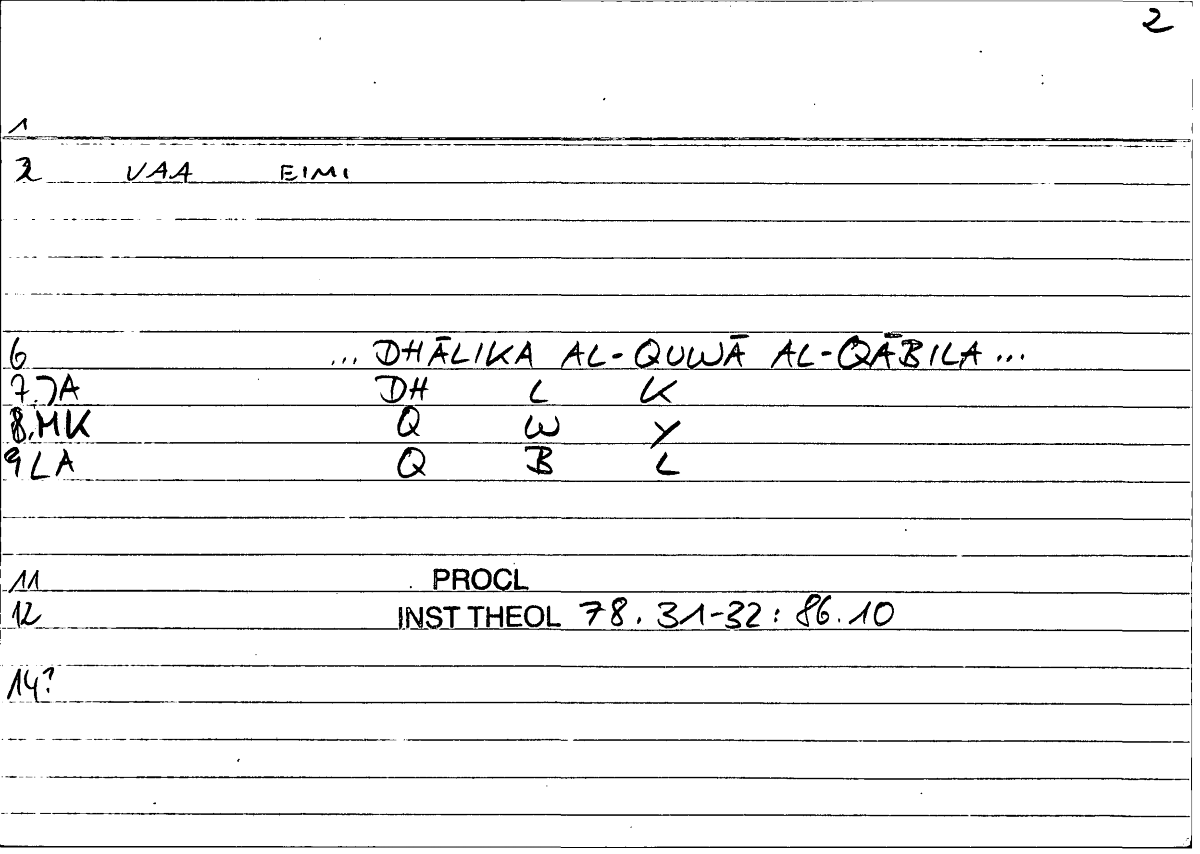 2
1
2 VAA EIMI
6 ... DHĀLIKA AL-QUWĀ AL-QĀBILA ...
7. JA DH L K
8. MK Q W Y
9 LA Q B L
11 PROCL
12 INST THEOL 78. 31-32 : 86.10
14?